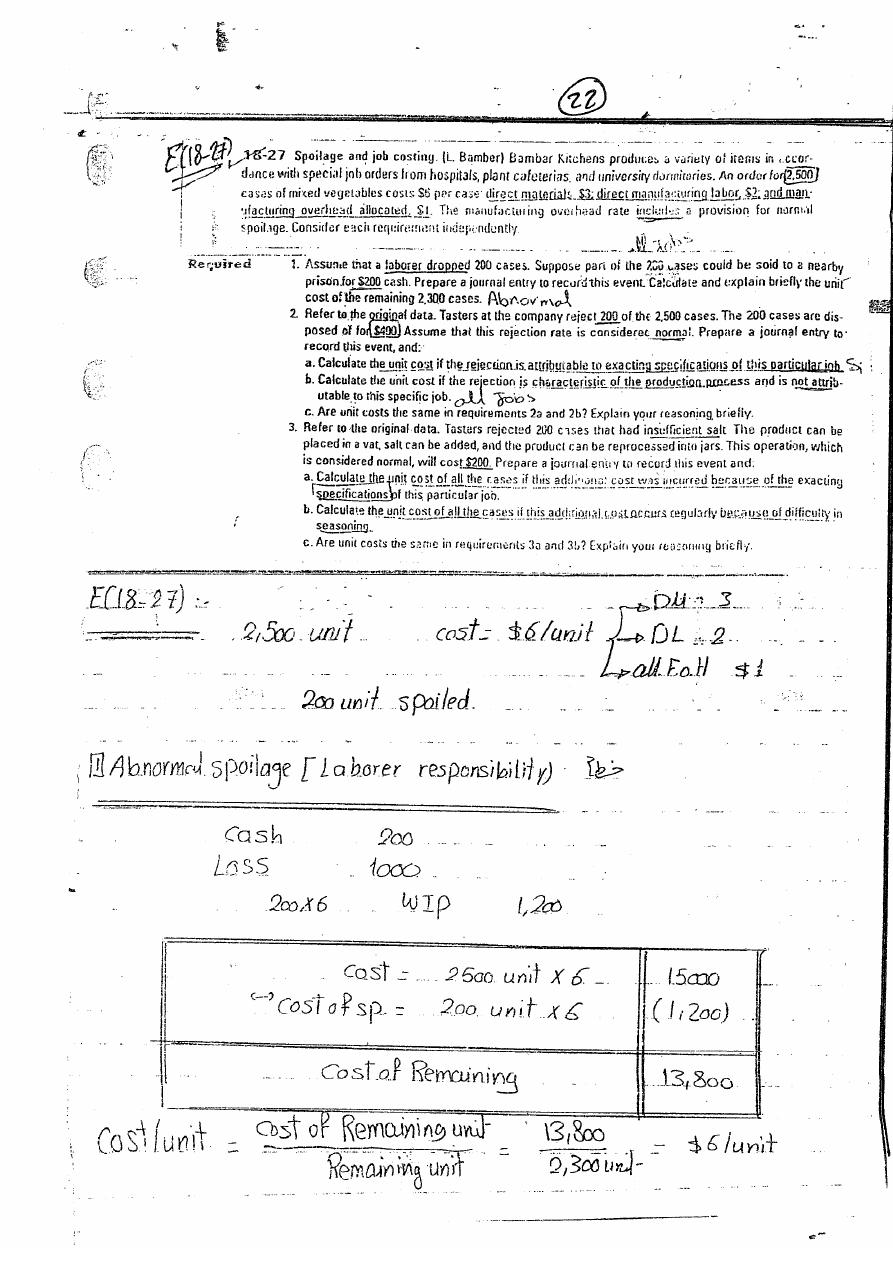 22
E(18-27)
18-27 Spoilage and job costing. (L. Bamber) Bambar Kitchens produces a variety of items in accor-
dance with special job orders from hospitals, plant cafeterias, and university dormitories. An order for 2,500
cases of mixed vegetables costs $6 per case: direct materials, $3; direct manufacturing labor, $2; and man-
ufacturing overhead allocated, $1. The manufacturing overhead rate includes a provision for normal
spoilage. Consider each requirement independently.
Required 1. Assume that a laborer dropped 200 cases. Suppose part of the 200 cases could be sold to a nearby
prison for $200 cash. Prepare a journal entry to record this event. Calculate and explain briefly the unit
cost of the remaining 2,300 cases. Abnormal
2. Refer to the original data. Tasters at the company reject 200 of the 2,500 cases. The 200 cases are dis-
posed of for $400. Assume that this rejection rate is considered normal. Prepare a journal entry to
record this event, and:
a. Calculate the unit cost if the rejection is attributable to exacting specifications of this particular job.
b. Calculate the unit cost if the rejection is characteristic of the production process and is not attrib-
utable to this specific job. all Jobs
c. Are unit costs the same in requirements 2a and 2b? Explain your reasoning briefly.
3. Refer to the original data. Tasters rejected 200 cases that had insufficient salt. The product can be
placed in a vat, salt can be added, and the product can be reprocessed into jars. This operation, which
is considered normal, will cost $200. Prepare a journal entry to record this event and:
a. Calculate the unit cost of all the cases if this additional cost was incurred because of the exacting
specifications of this particular job.
b. Calculate the unit cost of all the cases if this additional cost occurs regularly because of difficulty in
seasoning.
c. Are unit costs the same in requirements 3a and 3b? Explain your reasoning briefly.
E(18-27) :-
DM = 3
2,500 unit cost = $6/unit DL = 2
all. F.o.H $1
200 unit spoiled.
1 Abnormal spoilage [Laborer responsibility)
Cash 200
Loss 1000
200 X 6 WIP 1,200
Cost = 2500 unit X 6 15000
Cost of sp. = 200 unit X 6 (1,200)
Cost of Remaining 13,800
Cost/unit = Cost of Remaining unit / Remaining unit = 13,800 / 2,300 unit = $6/unit